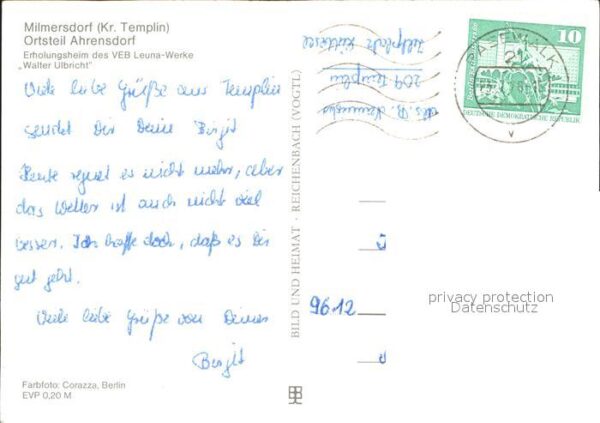 Milmersdorf (Kr. Templin)
Ortsteil Ahrensdorf
Erholungsheim des VEB Leuna-Werke
„Walter Ulbricht"
Viele liebe Grüße aus Templin
sendet Dir Deine Birgit
Heute regnet es nicht mehr, aber
das Wetter ist auch nicht viel
besser. Ich hoffe doch, daß es Dir
gut geht.
Viele liebe Grüße von Deiner
Birgit
Farbfoto: Corazza, Berlin
EVP 0,20 M
BILD UND HEIMAT · REICHENBACH (VOGTL)
209 Templin
PASEWALK
21
10
DEUTSCHE DEMOKRATISCHE REPUBLIK
9612
privacy protection
Datenschutz